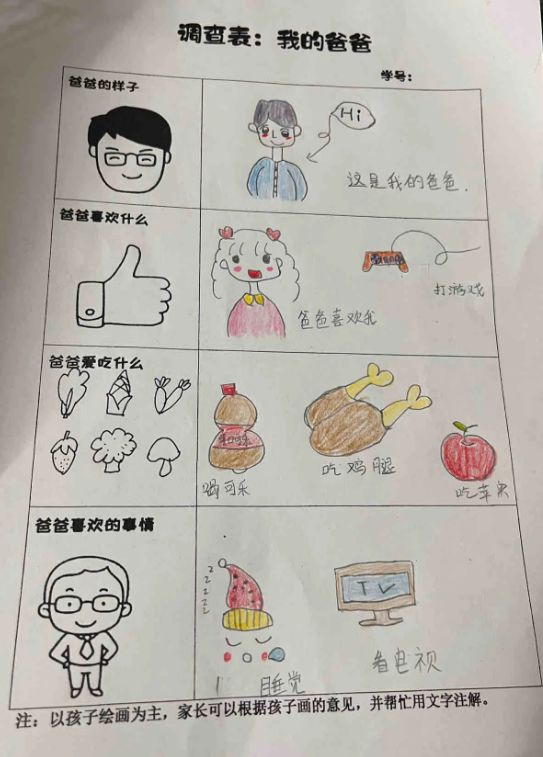 调查表：我的爸爸
学号：
爸爸的样子
Hi
这是我的爸爸.
爸爸喜欢什么
爸爸喜欢我
打游戏
爸爸爱吃什么
喝可乐
吃鸡腿
吃苹果
爸爸喜欢的事情
z
z
z
z
z
TV
睡觉
看电视
注：以孩子绘画为主，家长可以根据孩子画的意见，并帮忙用文字注解。